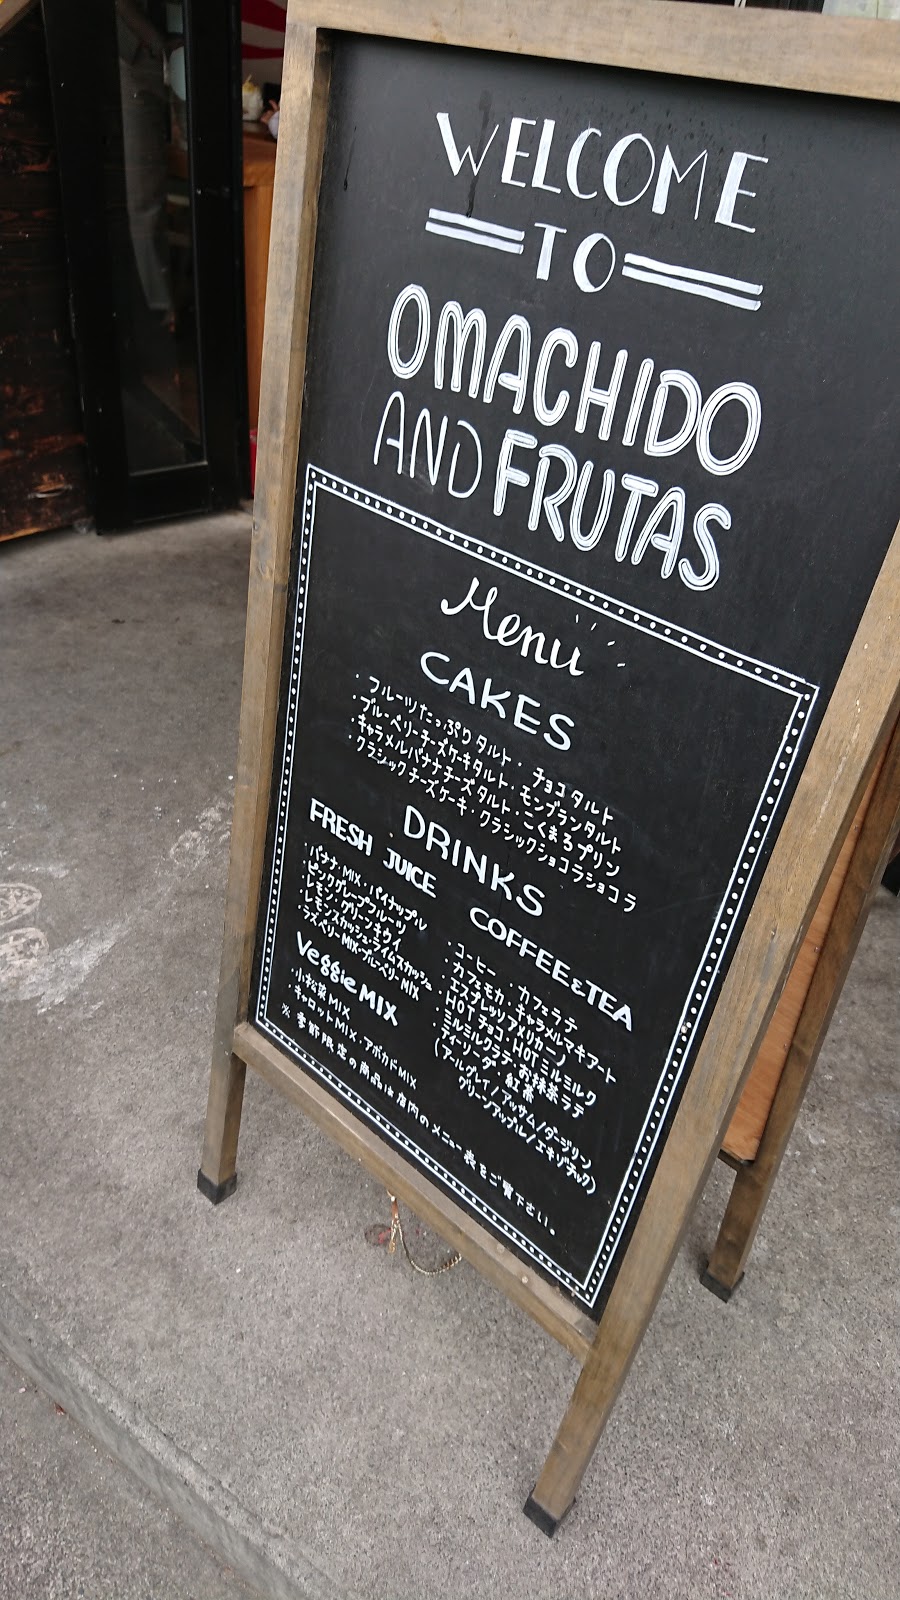 WELCOME
TO
OMACHIDO
AND FRUTAS
Menu
CAKES
・フルーツたっぷりタルト・チョコタルト
・ブルーベリーチーズケーキタルト・モンブランタルト
・キャラメルバナナチーズタルト・こくまろプリン
・クラシックチーズケーキ・クラシックショコラショコラ
DRINKS
FRESH JUICE
・バナナ・MIX・パイナップル
・ピンクグレープフルーツ
・レモン・グリーンキウイ
・レモンスカッシュ・ライムスカッシュ
・ラズベリーMIX・ブルーベリーMIX
Veggie MIX
・小松菜MIX
・キャロットMIX・アボカドMIX
COFFEE&TEA
・コーヒー・カフェラテ
・カフェモカ・キャラメルマキアート
・エスプレッソ(アメリカーノ)
・HOTチョコ・HOTミルミルク
・ミルミルクラテ・お抹茶ラテ
・ティーソーダ・紅茶
(アールグレイ/アッサム/ダージリン
グリーンアップル/エキゾチック)
※季節限定の商品は店内のメニュー表をご覧下さい。